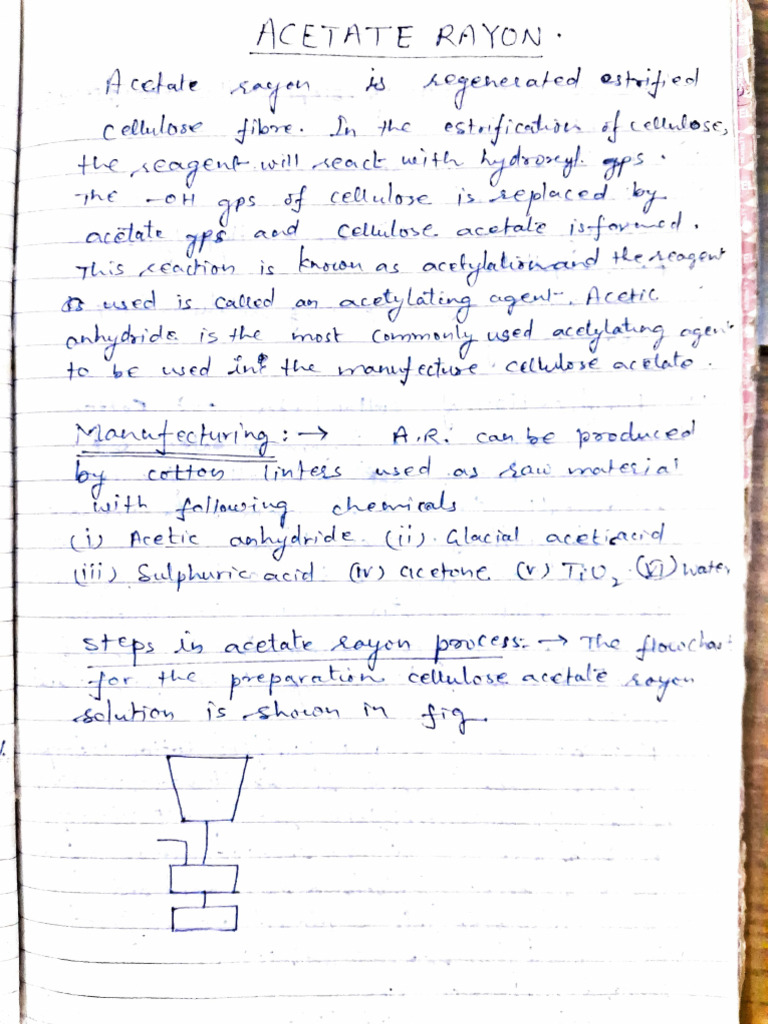 ACETATE RAYON.
Acetate rayon is regenerated estrified
cellulose fibre. In the estrification of cellulose,
the reagent will react with hydroxyl gps.
The -OH gps of cellulose is replaced by
acetate gps and cellulose acetate is formed.
This reaction is known as acetylation and the reagent
used is called an acetylating agent. Acetic
anhydride is the most commonly used acetylating agent
to be used in the manufecture cellulose acetate.
Manufecturing :→ A.R. can be produced
by cotton linters used as raw material
with following chemicals
(i) Acetic anhydride (ii) Glacial aceticacid
(iii) Sulphuric acid (iv) acetone (v) TiO₂ (vi) water
Steps in acetate rayon process:→ The flowchart
for the preparation cellulose acetate rayon
solution is shown in fig.